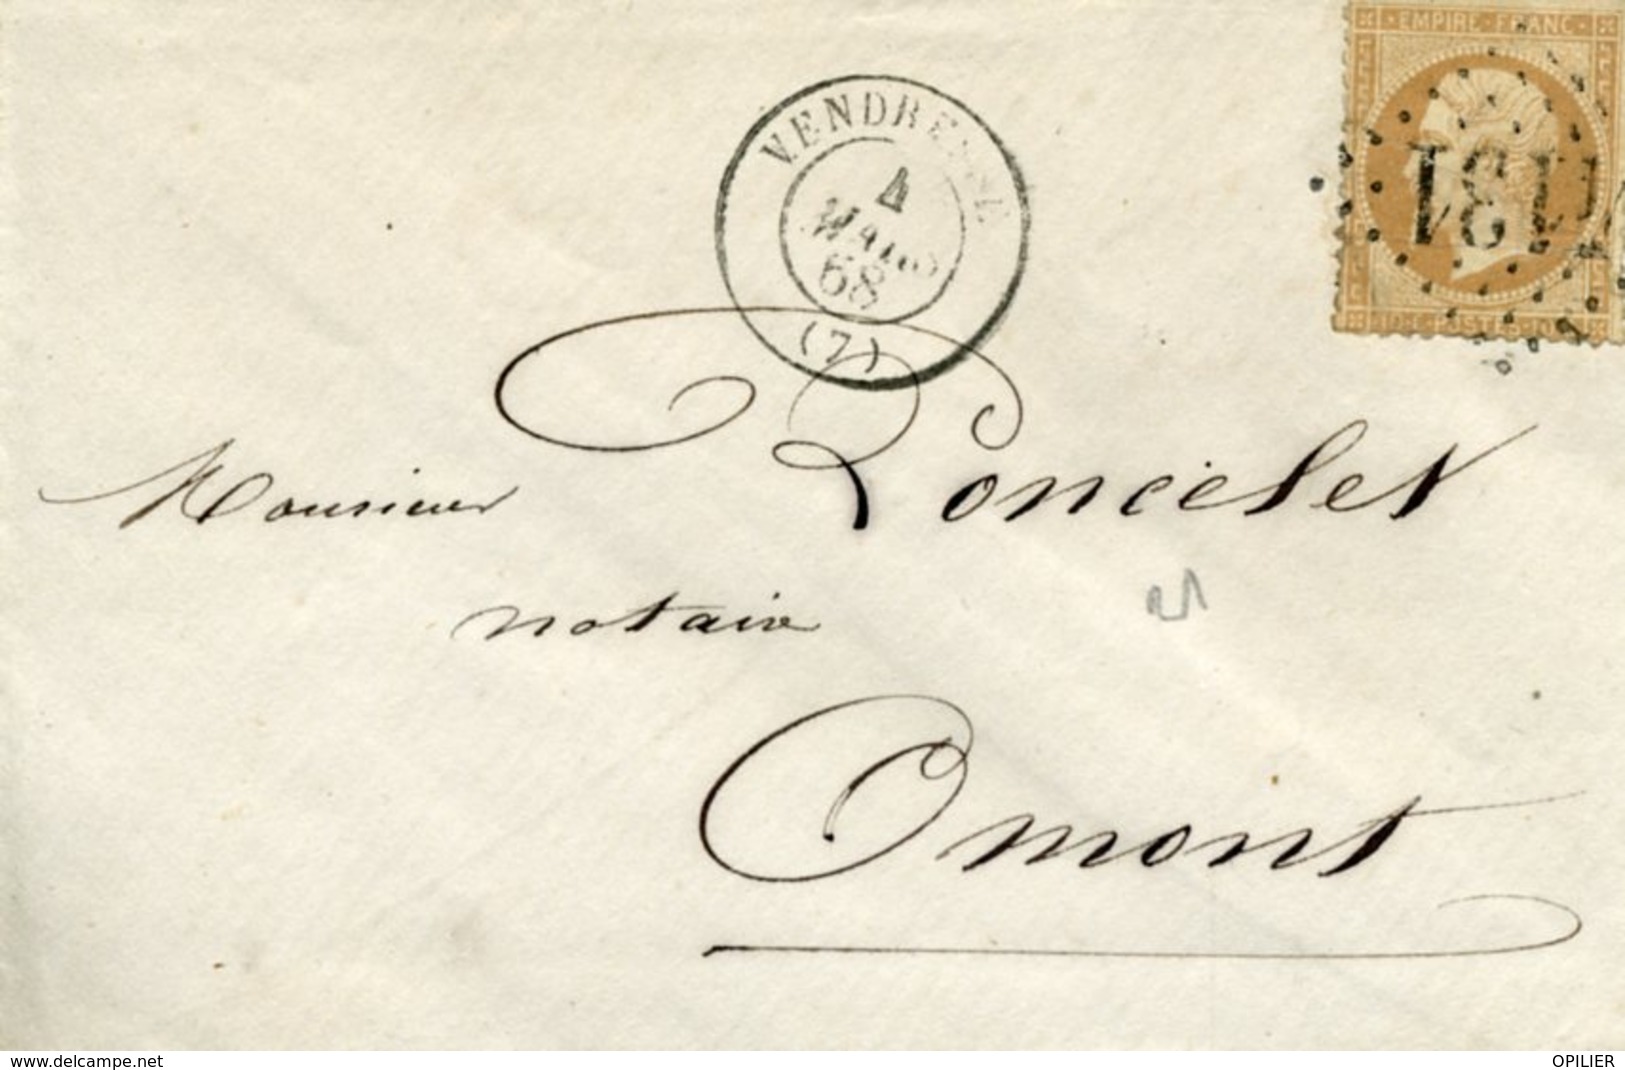 EMPIRE FRANC
VENDRESSE
4
MARS
68
(7)
Monsieur Poncelet
notaire
Omont
10 c POSTES 10 c
www.delcampe.net
OPILIER